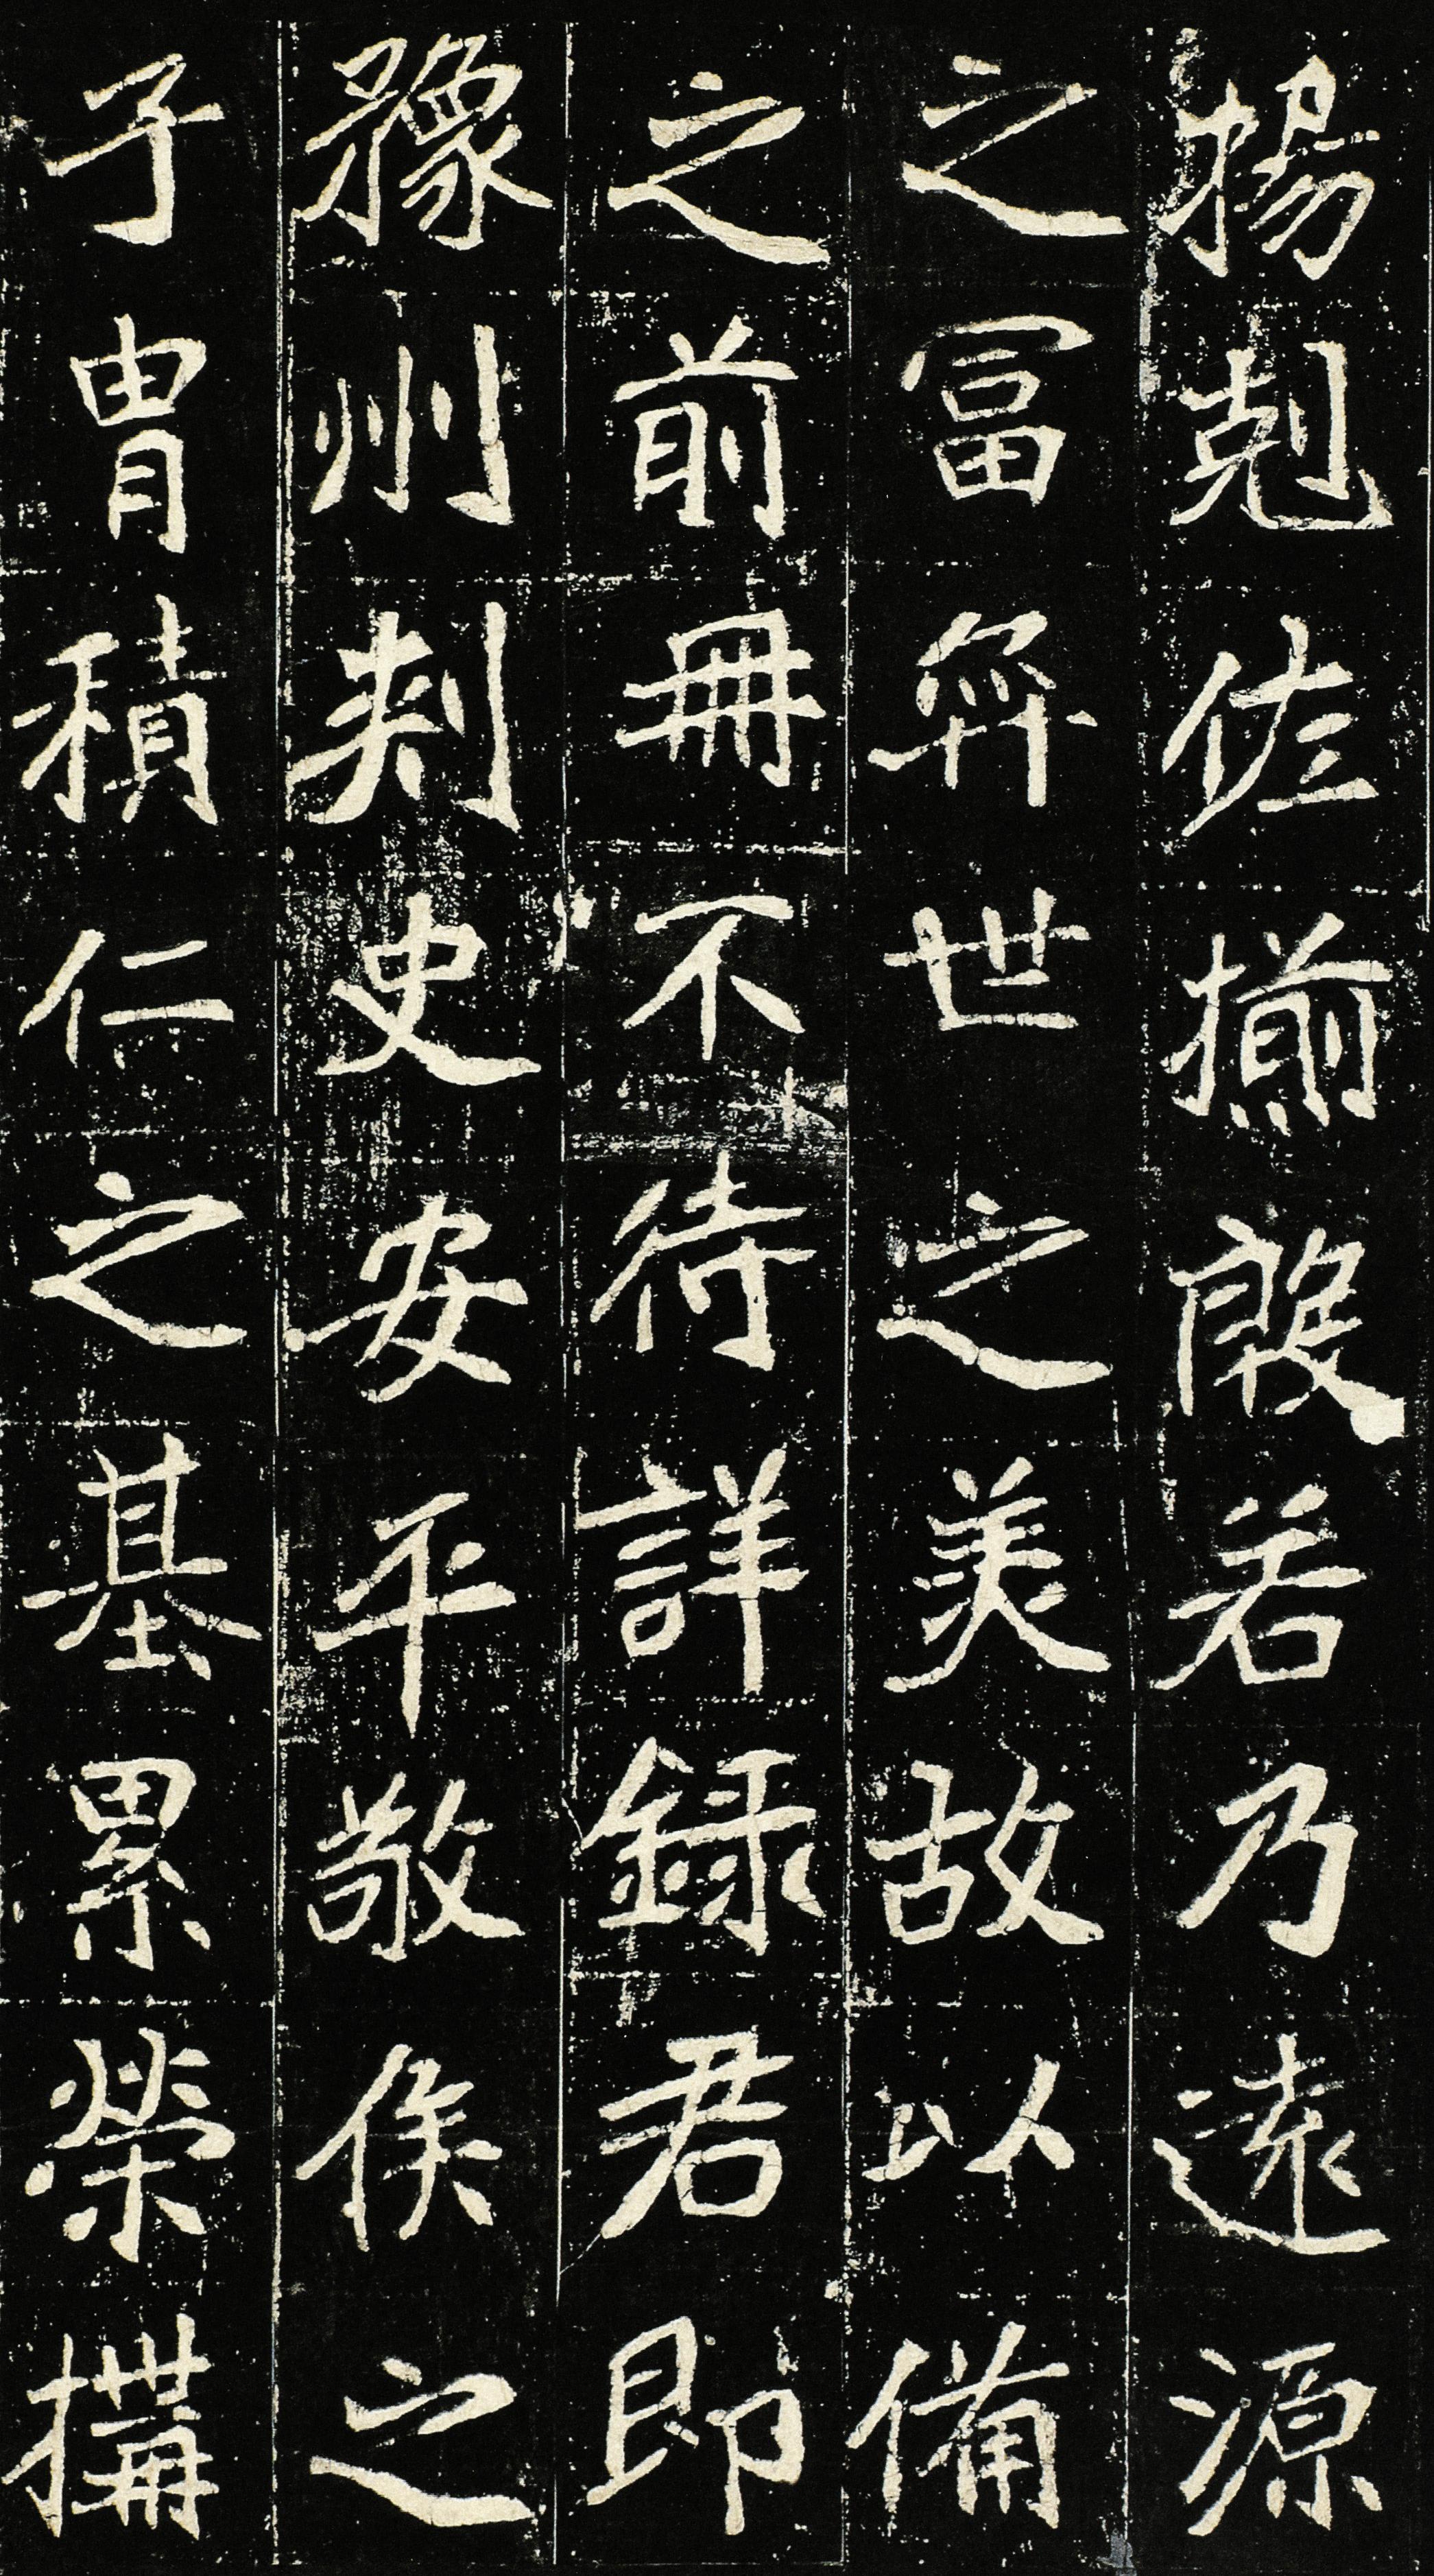 揚剋佐揃殷若乃遠源
之冨弈世之美故以備
之前冊不待詳録君即
豫州刺史安平敬侯之
子胄積仁之基累榮搆